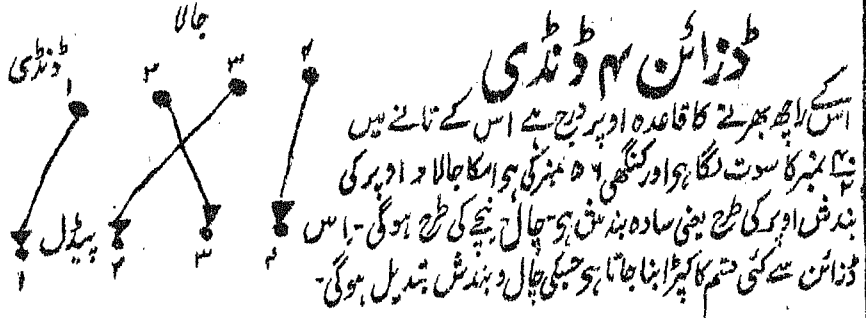 ڈزائن ۴ ڈنڈی
اس کے راچھ بھرنے کا قاعدہ اوپر درج ہے اس کے تانے میں
۴۰/۲ نمبر کا سوت لگا ہو اور کنگھی ۵۶ نمبر کی ہو اسکا جالا و اوپر کی
بندش اوپر کی طرح یعنی سادہ بندش ہو۔ چال نیچے کی طرح ہوگی۔ اس
ڈزائن سے کئی قسم کا کپڑا بنا جاتا ہو جسکی چال و بندش تبدیل ہوگی۔
جالا
ڈنڈی
۱ ۲ ۳ ۴
پیڈل
۱ ۲ ۳ ۴